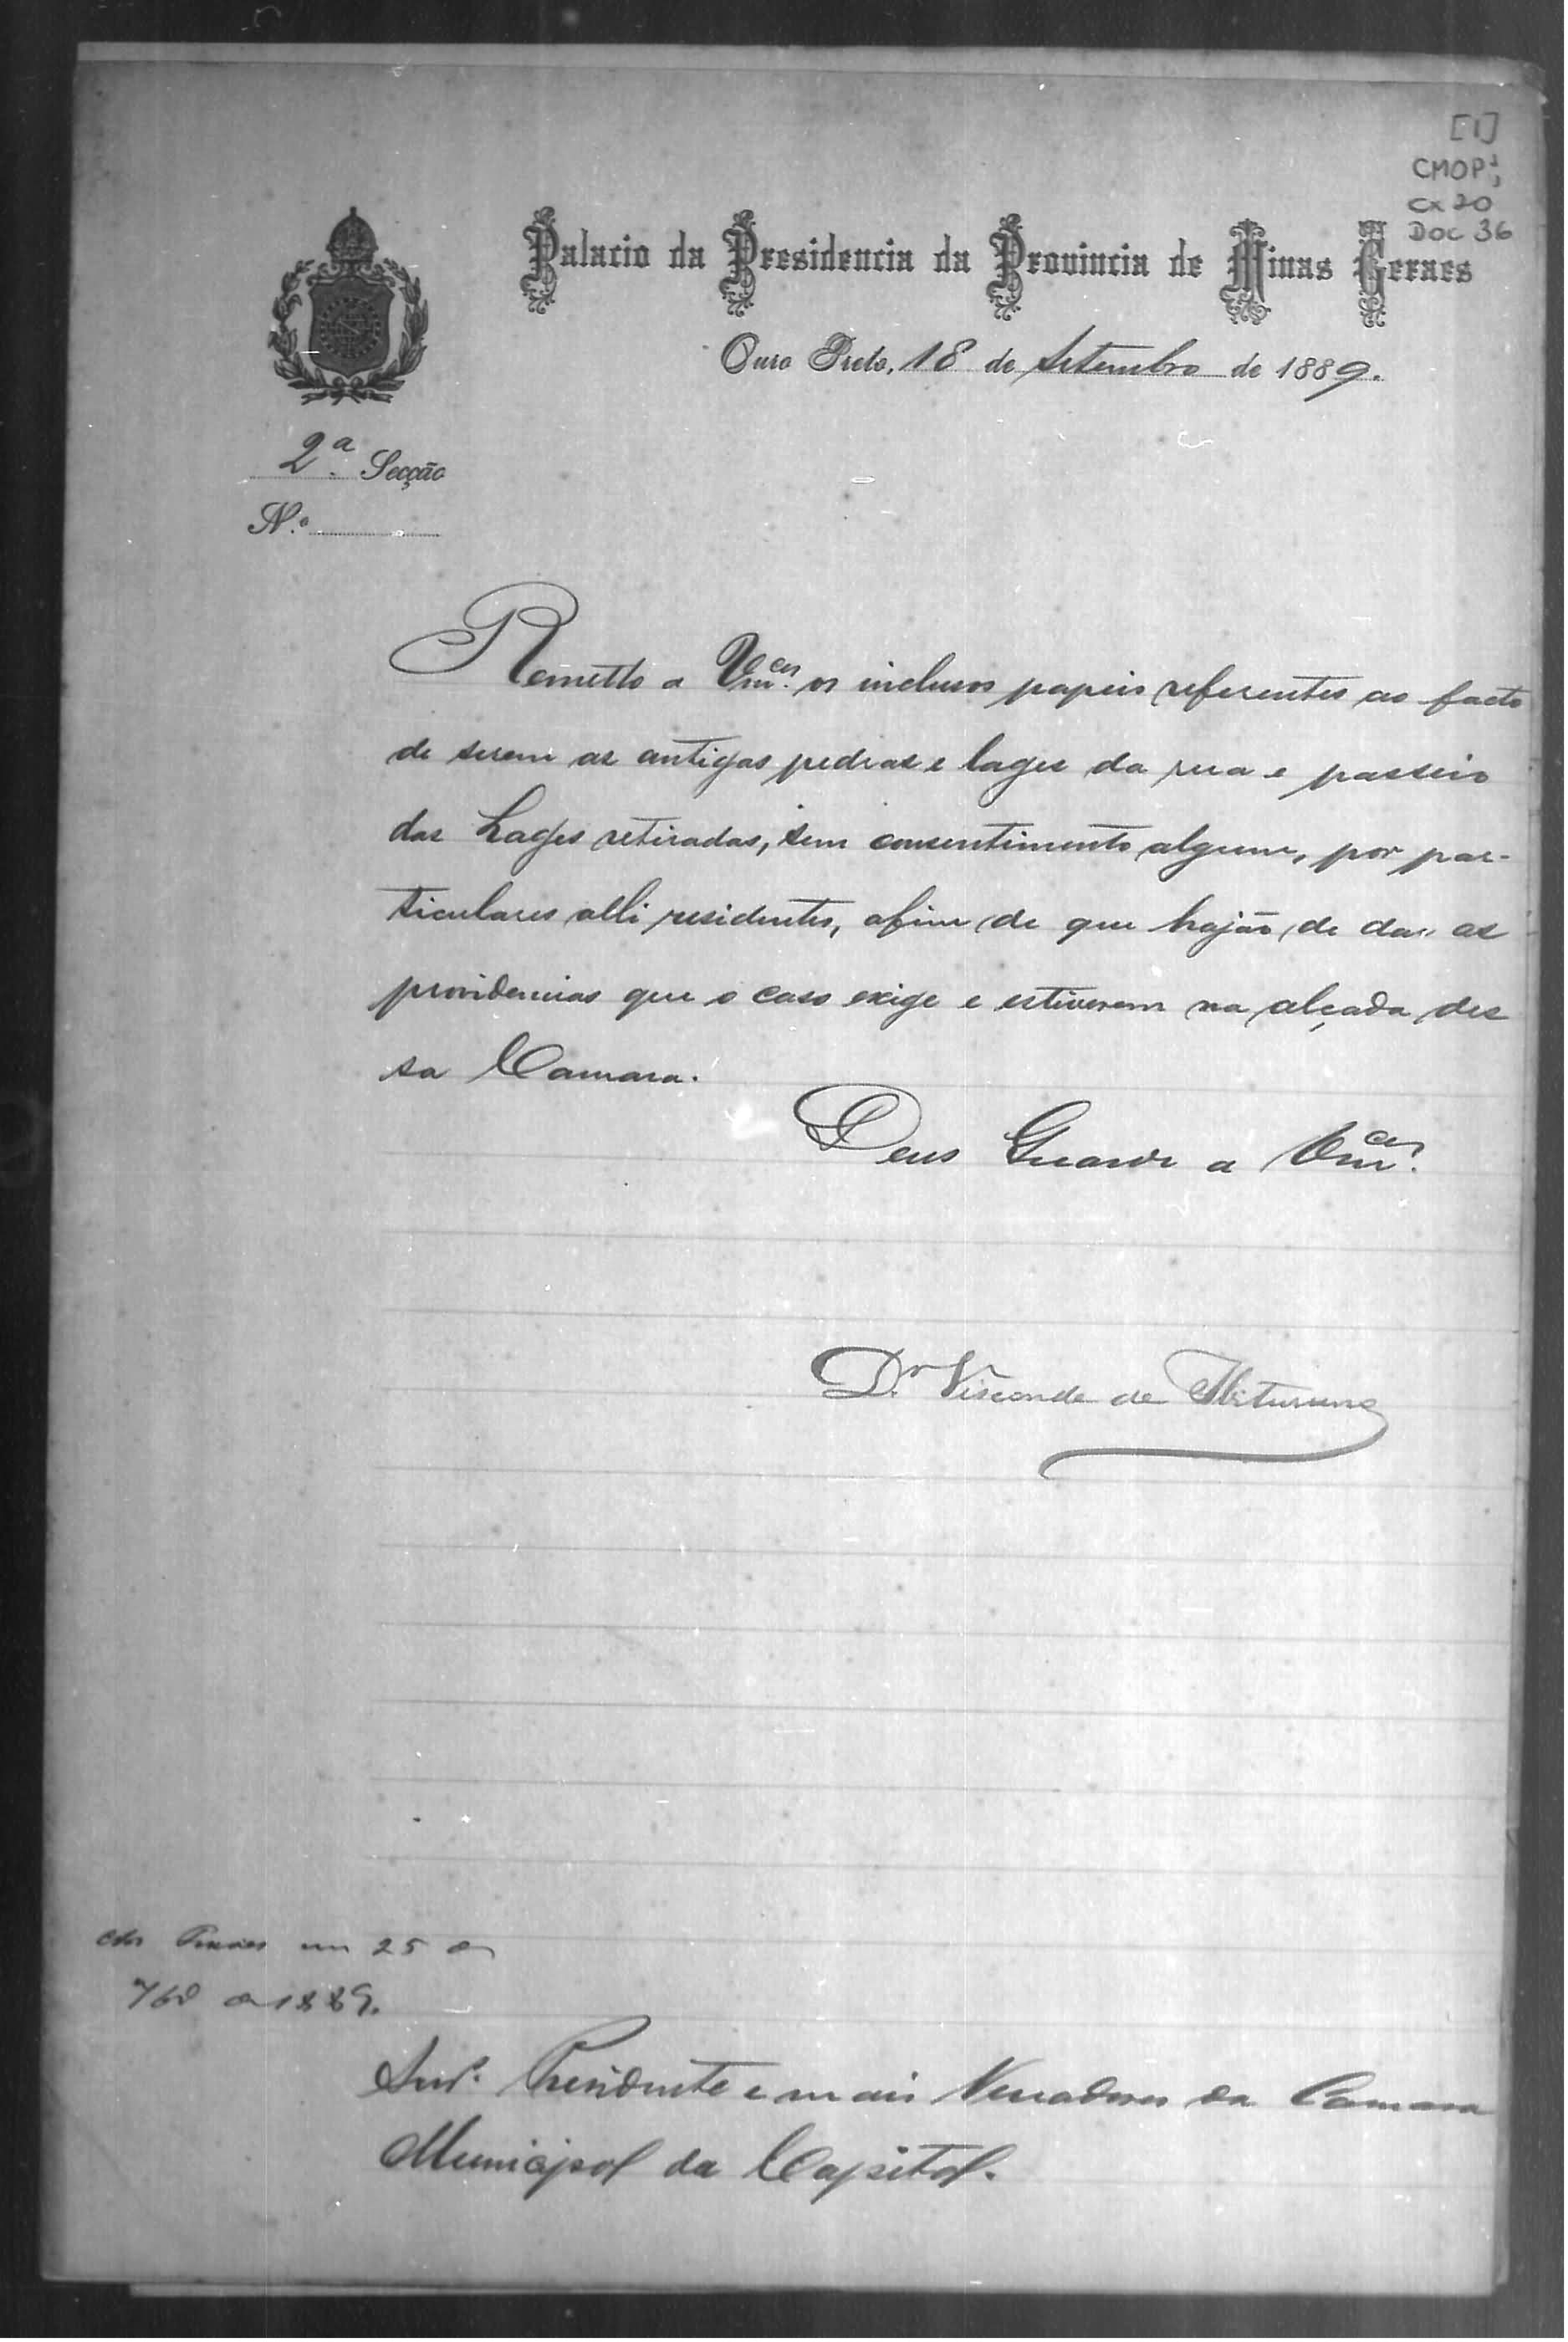 [1]
CMOP;
cx 20
Doc 36
Palacio da Presidencia da Provincia de Minas Geraes
Ouro Preto, 18 de Setembro de 1889.
2ª Secção
N.º
Remetto a Vm.ces os inclusos papeis referentes ao facto
de serem as antigas pedras e lages da rua e passeio
das Lages retiradas, sem consentimento algum, por par-
ticulares alli residentes, afim de que hajão de dar as
providencias que o caso exige e estiverem na alçada des
sa Camara.
Deus Guarde a Vm.ces
Dr. Visconde de Ibituruna
em 25 de
de 1889.
Snr. Presidente e mais Vereadores da Camara
Municipal da Capital.